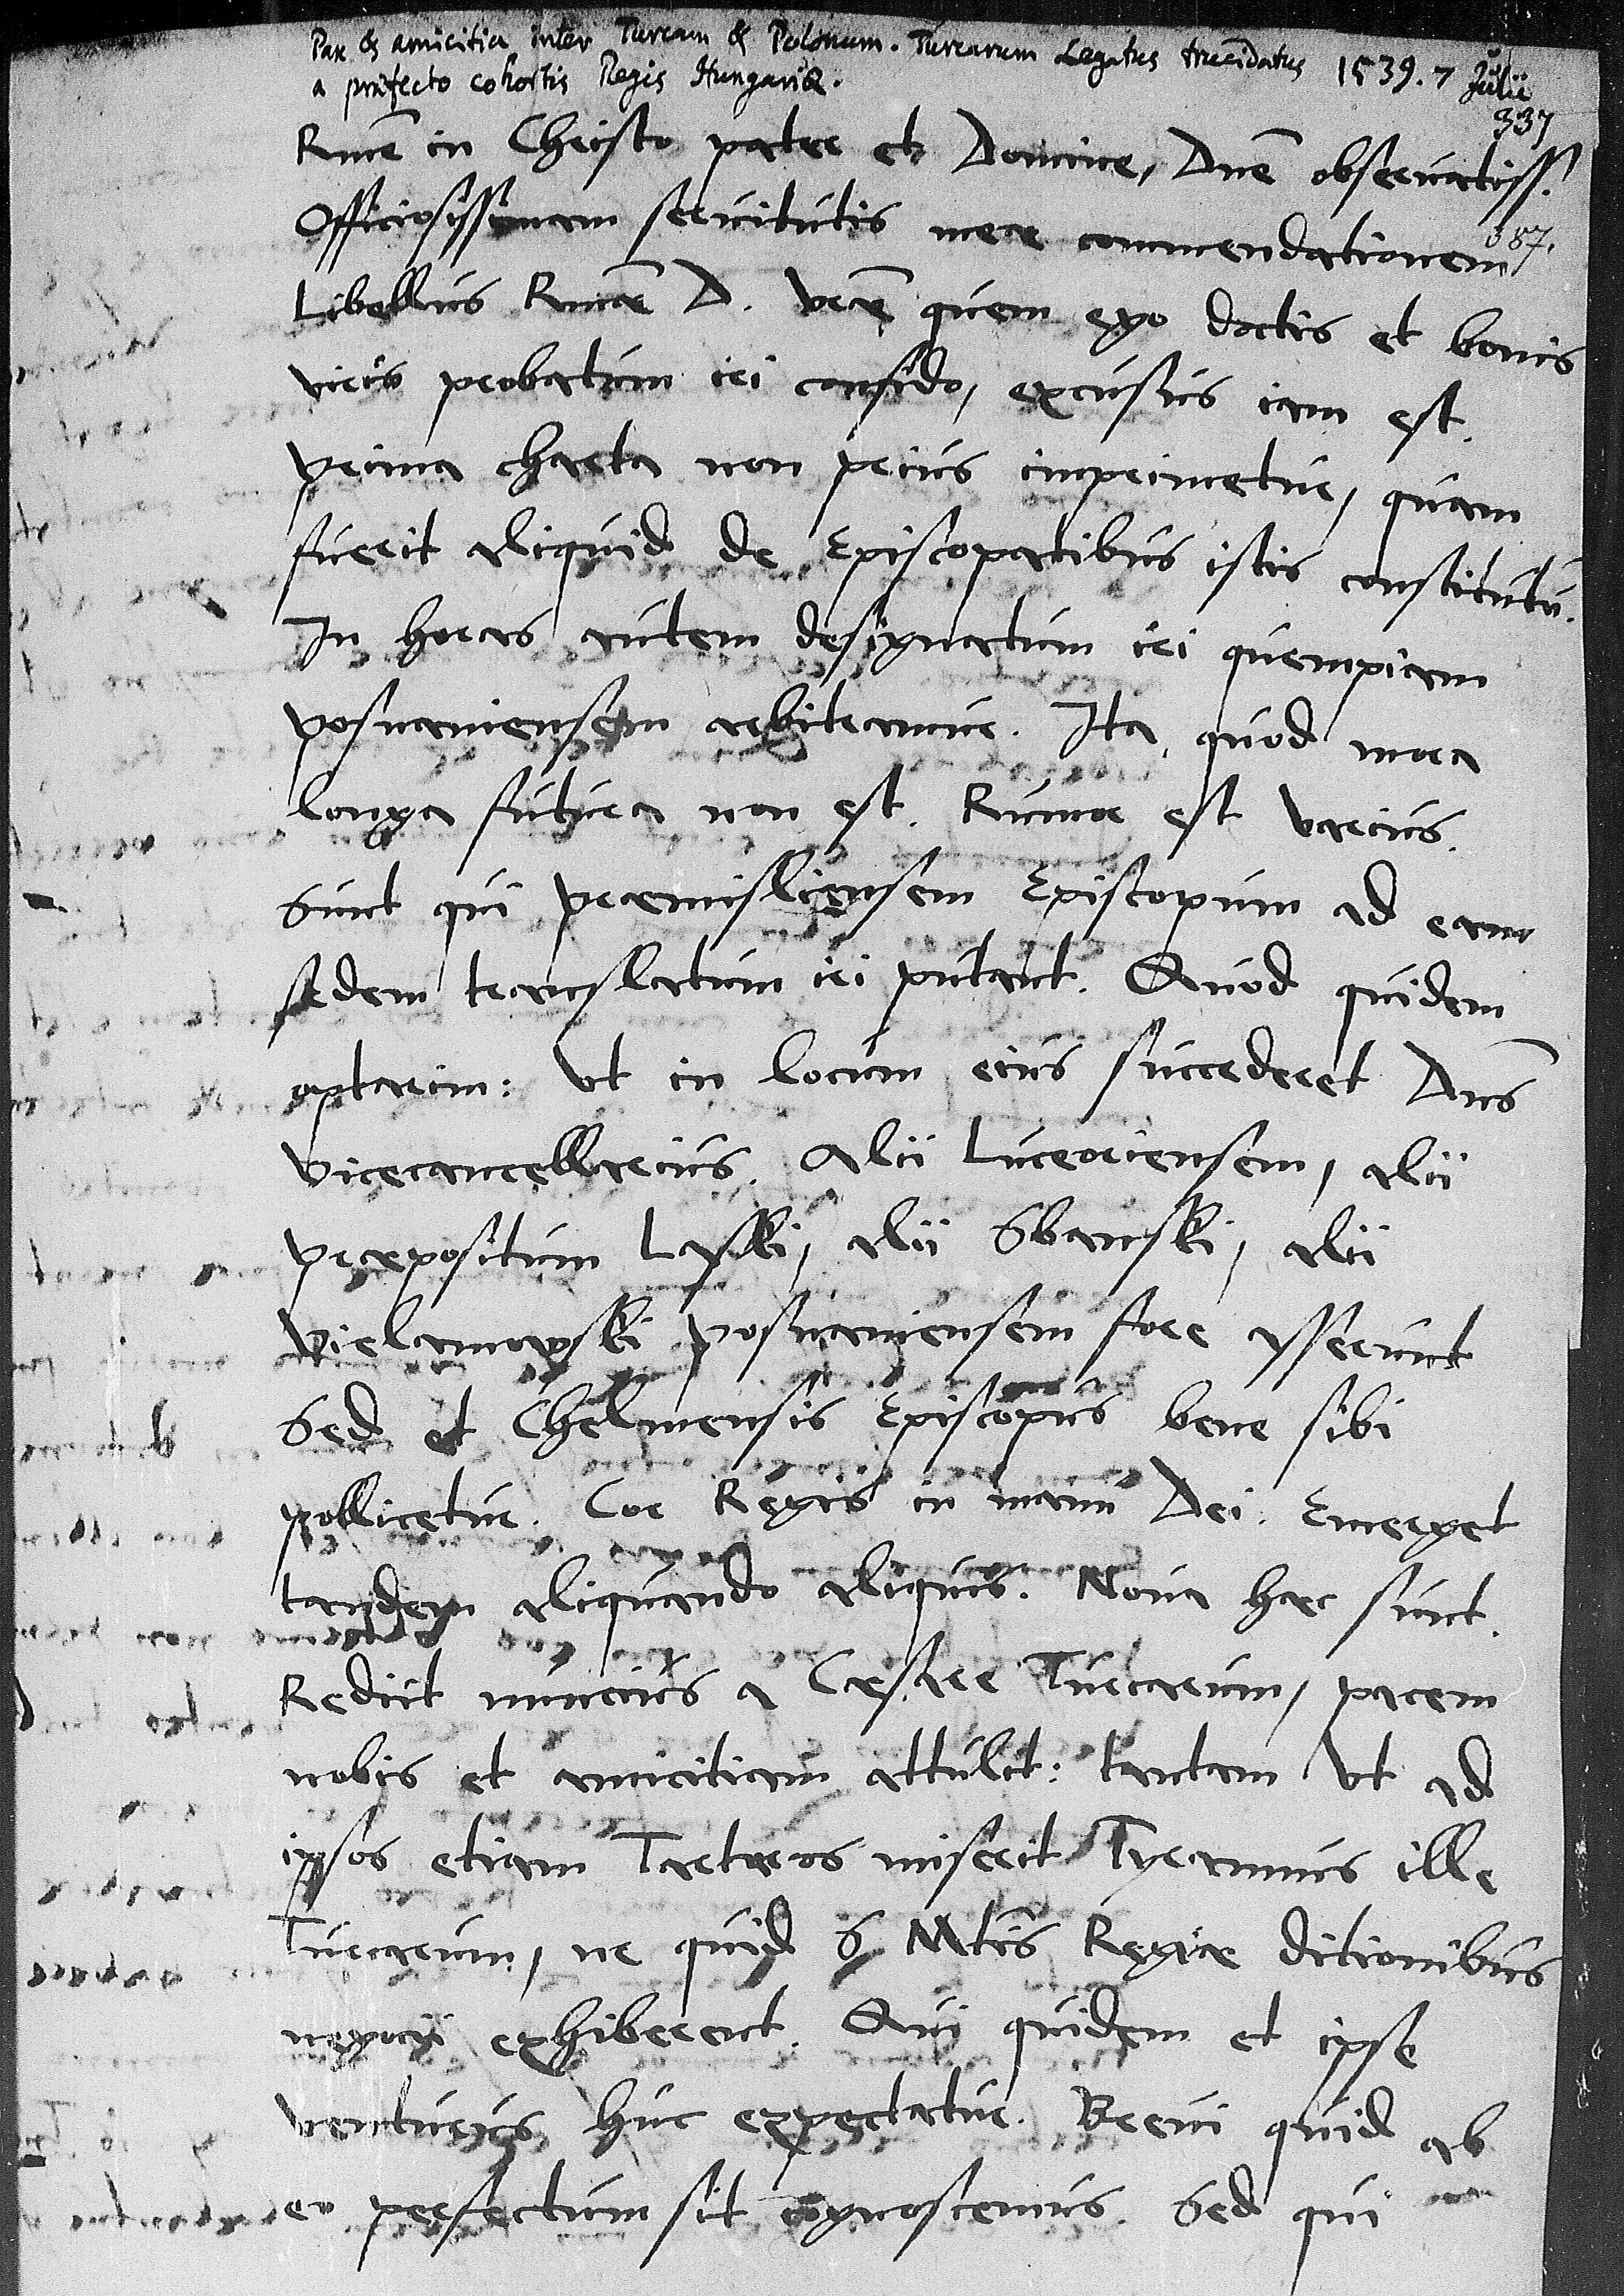 Pax & amicitia inter Turcam & Polonum. Turcarum Legatus trucidatus 1539. 7 Julii
a præfecto cohortis Regis Hungariæ.
337
Rme in Christo pater et Domine, Dne obseruatiss.
Officiosissimam seruitutis meae commendationem
387.
Libellus Rmae D. Vrae quem ego doctis et bonis
viris probatum iri confido, excusus iam est.
Prima charta non prius imprimetur, quam
fuerit aliquid de Episcopatibus istis constitutu.
In horas autem designatum iri quempiam
Posnaniensem arbitramur. Ita quod mora
longa futura non est. Rumor est varius.
Sunt qui Praemisliensem Episcopum ad eam
sedem translatum iri putant. Quod quidem
optarim: Vt in locum eius succederet Dns
Vicecancellarius. Alii Luceoriensem, alii
Praepositum Laski, alii Sbanski, alii
Vielamowski Posnaniensem fore asserunt
Sed et Chelmensis Episcopus bene sibi
pollicetur. Cor Regis in manu Dei. Emerget
tandem aliquando aliquis. Noua haec sunt.
Rediit nuncius a Caesare Turcarum, pacem
nobis et amicitiam attulit: tantam Vt ad
ipsos etiam Tartaros miserit Tyrannus ille
Turcarum, ne quid S. Mtis Regiae ditionibus
negocii exhiberent. Qui quidem et ipse
venturus huc expectatur. Breui quid ab
eo perfectum sit cognoscemus. Sed qui